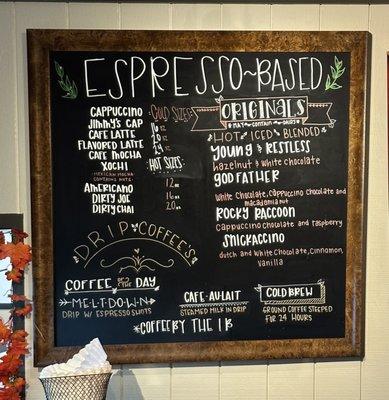 ESPRESSO~BASED
CAPPUCCINO
JIMMY'S CAP
CAFE LATTE
FLAVORED LATTE
CAFE MOCHA
XOCHI
MEXICAN MOCHA
CONTAINS NUTS
AMERICANO
DIRTY JOE
DIRTY CHAI
COLD SIZES
16 oz
HOT SIZES
12 oz
16 oz
20 oz
ORIGINALS
*MAY CONTAIN DAIRY*
HOT ICED BLENDED
YOUNG & RESTLESS
hazelnut & white chocolate
GODFATHER
White Chocolate, Cappuccino Chocolate and
macadamia nut
ROCKY RACCOON
Cappuccino chocolate and raspberry
SNICKACCINO
dutch and White Chocolate, Cinnamon,
Vanilla
DRIP COFFEE'S
COFFEE OF THE DAY
MELTDOWN
DRIP W/ ESPRESSO SHOTS
CAFE-AU-LAIT
STEAMED MILK IN DRIP
COLD BREW
GROUND COFFEE STEEPED
FUR 24 HOURS
*COFFEE BY THE LB